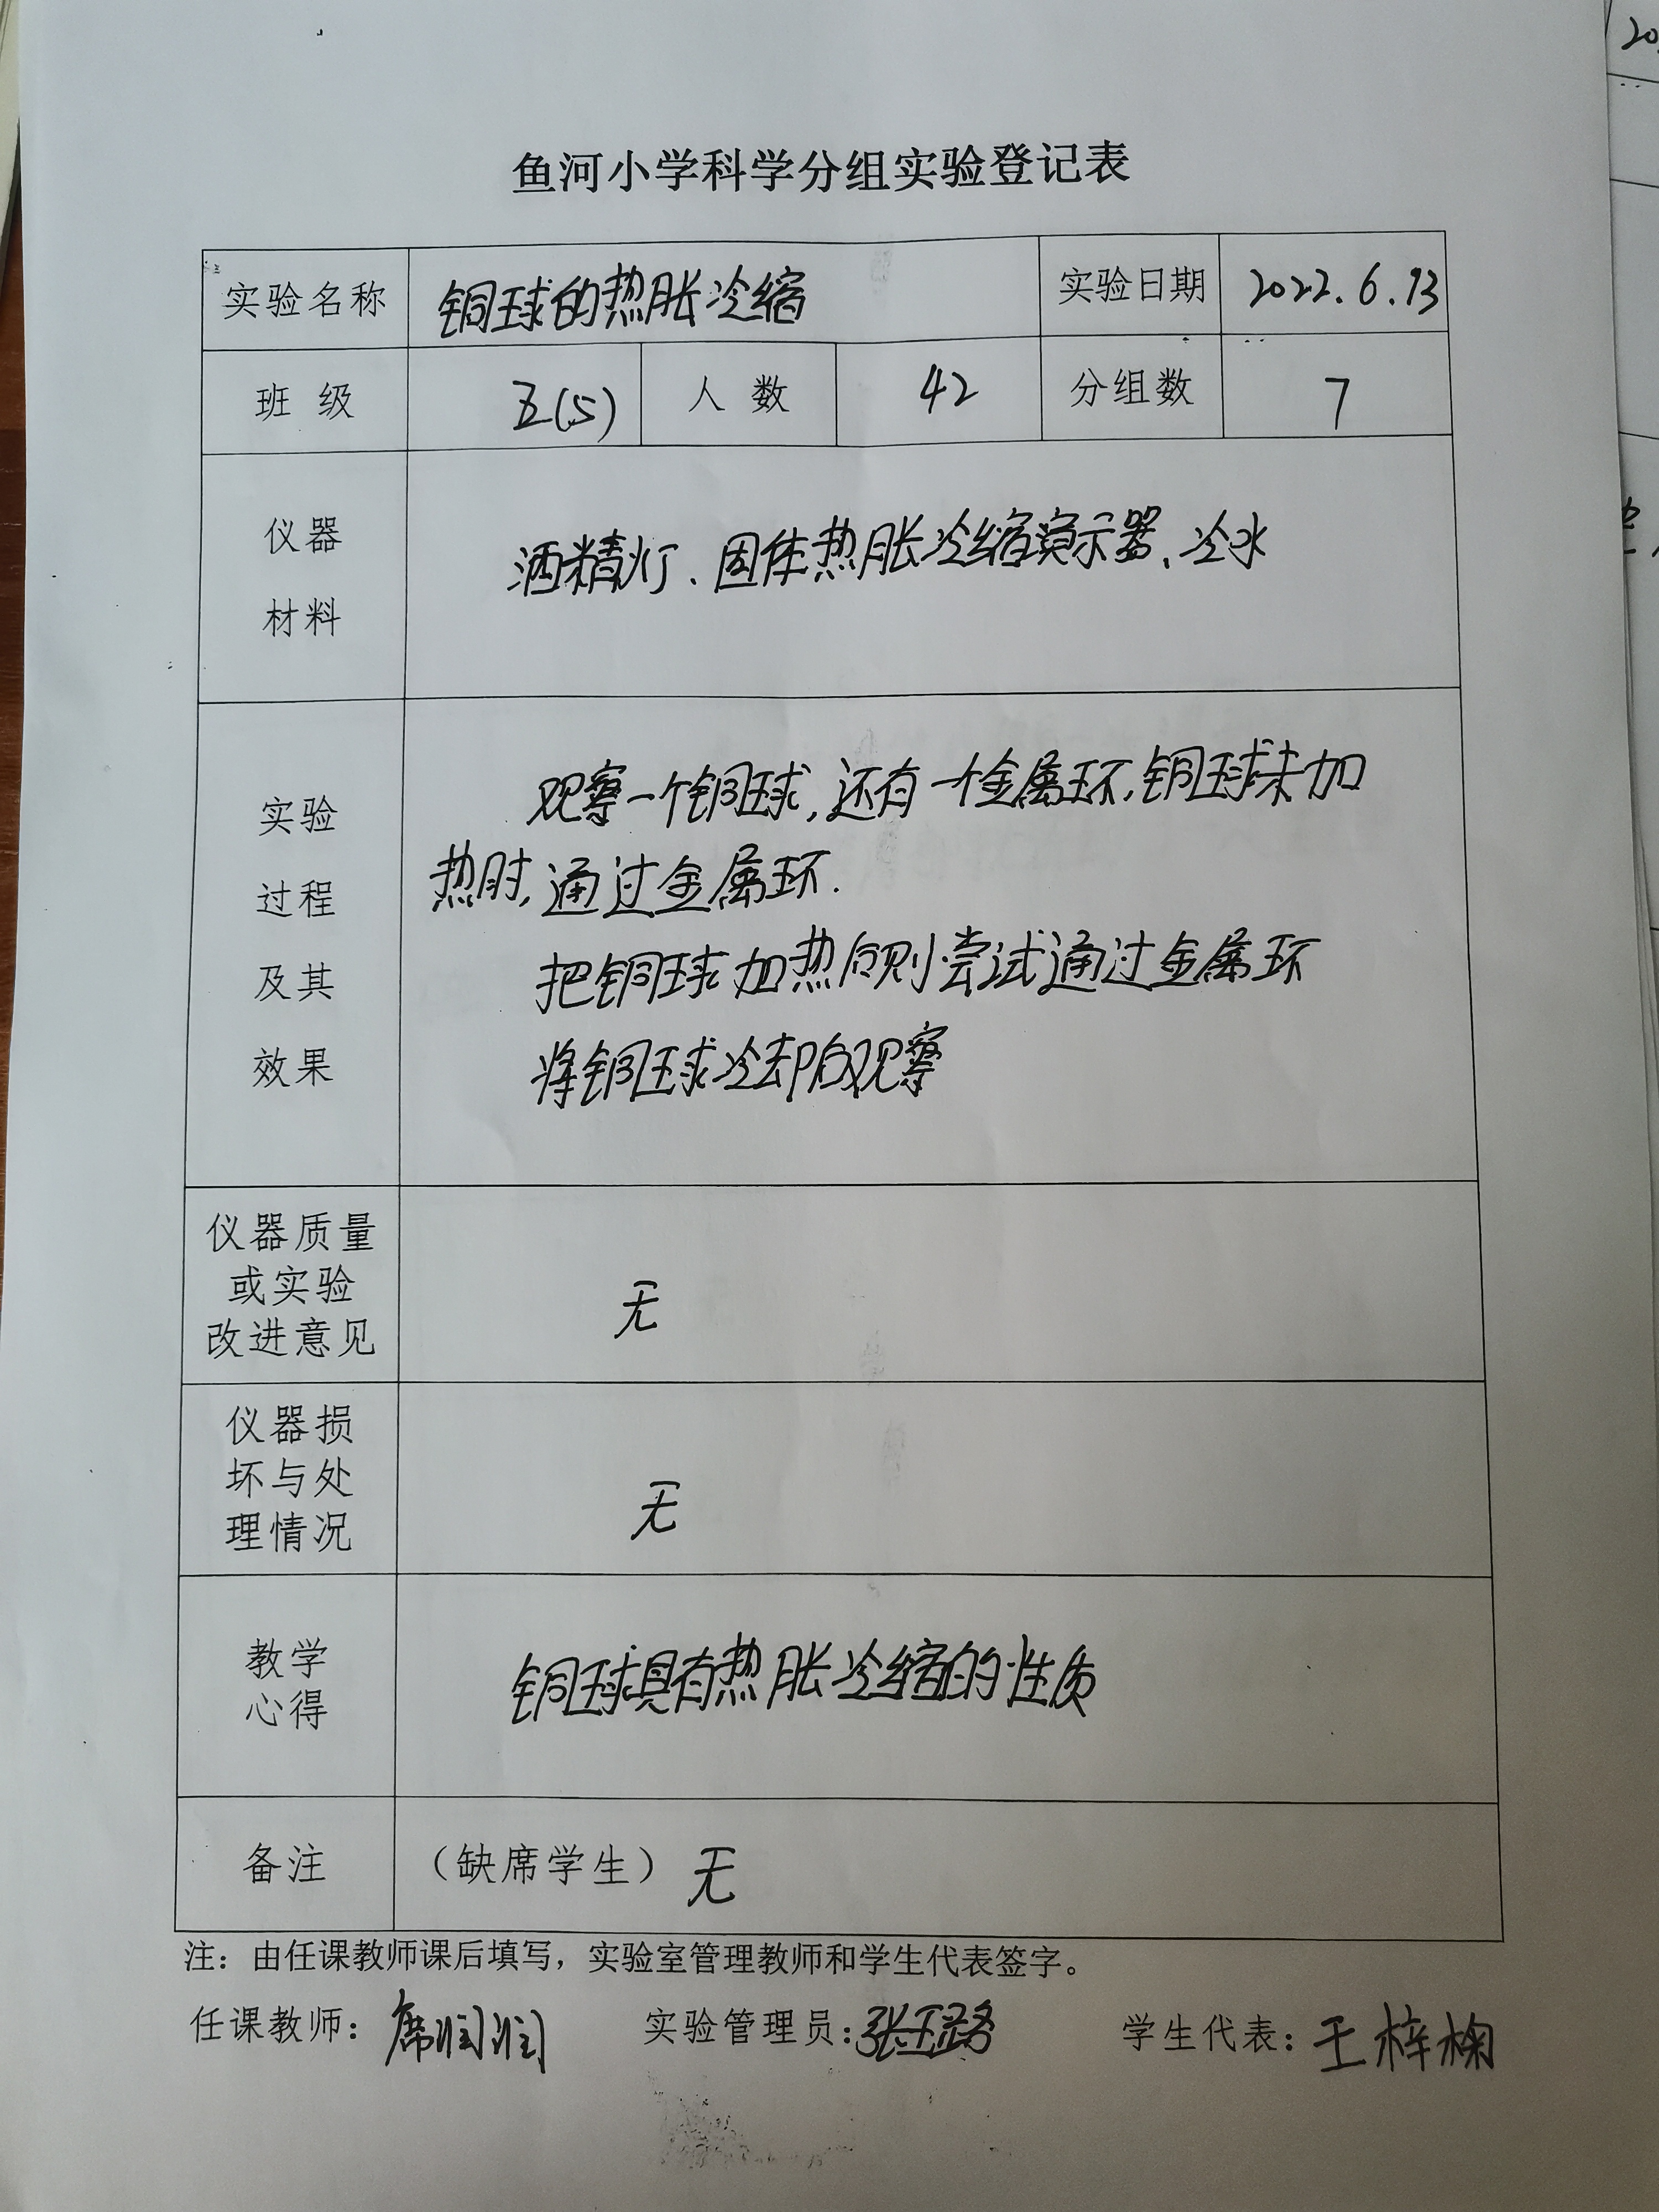 鱼河小学科学分组实验登记表
实验名称 铜球的热胀冷缩 实验日期 2022.6.13
班 级 五(5) 人 数 42 分组数 7
仪器
材料
酒精灯、固体热胀冷缩演示器、冷水
实验
过程
及其
效果
观察一个铜球,还有一个金属环,铜球未加
热时,通过金属环.
把铜球加热后则尝试通过金属环
将铜球冷却后观察
仪器质量
或实验
改进意见
无
仪器损
坏与处
理情况
无
教学
心得
铜球具有热胀冷缩的性质
备注 （缺席学生）无
注：由任课教师课后填写，实验室管理教师和学生代表签字。
任课教师：席润润 实验管理员：张玉璐 学生代表：王梓